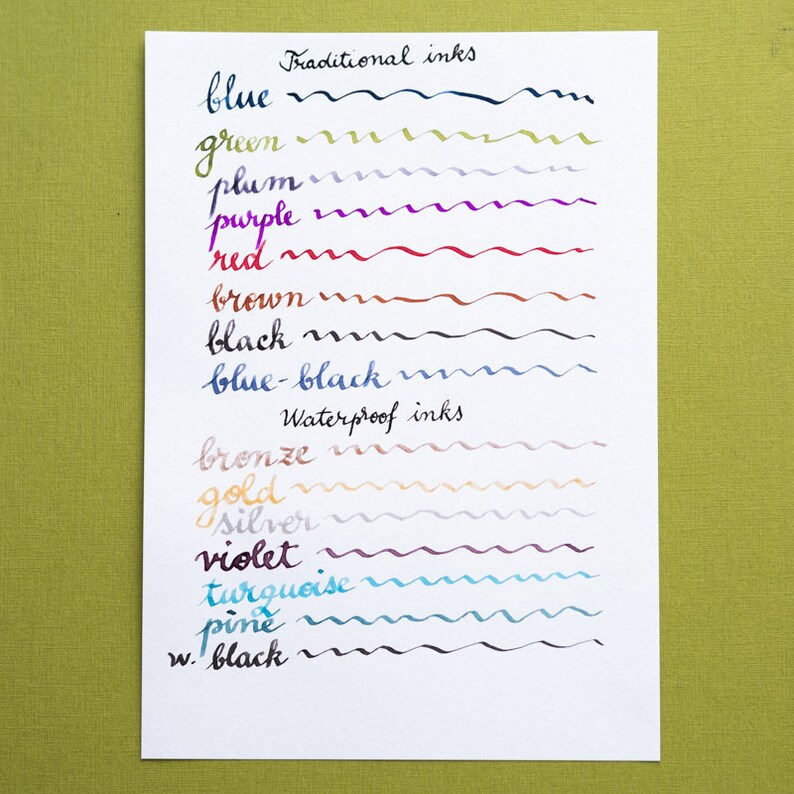 Traditional inks
blue
green
plum
purple
red
brown
black
blue-black
Waterproof inks
bronze
gold
silver
violet
turquoise
pine
w. black